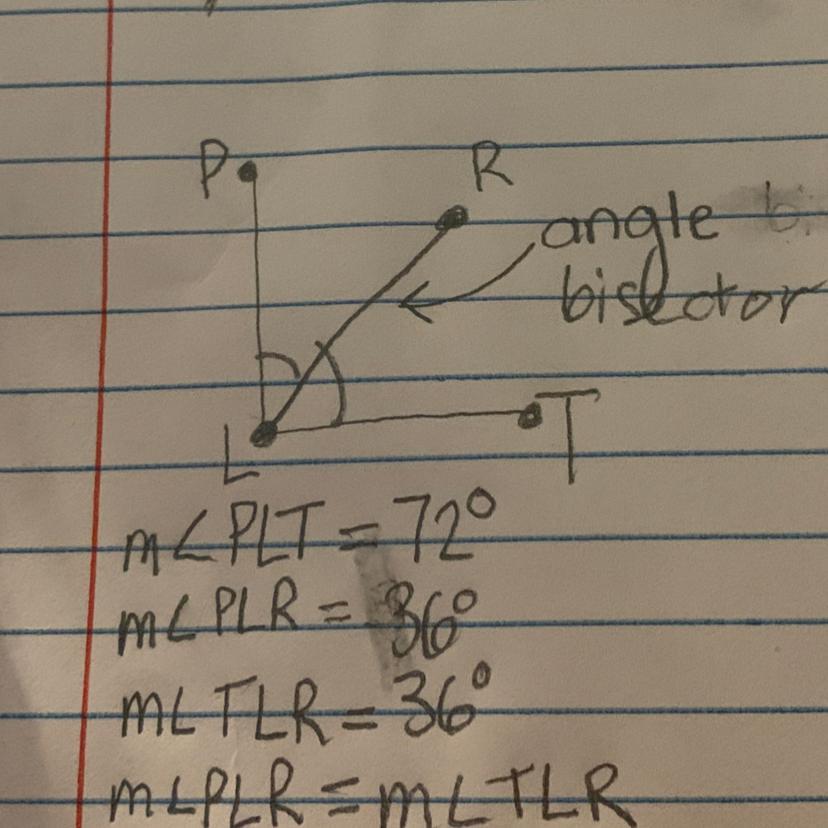 P
R
angle
bisector
L
T
m∠PLT = 72°
m∠PLR = 36°
m∠TLR = 36°
m∠PLR = m∠TLR